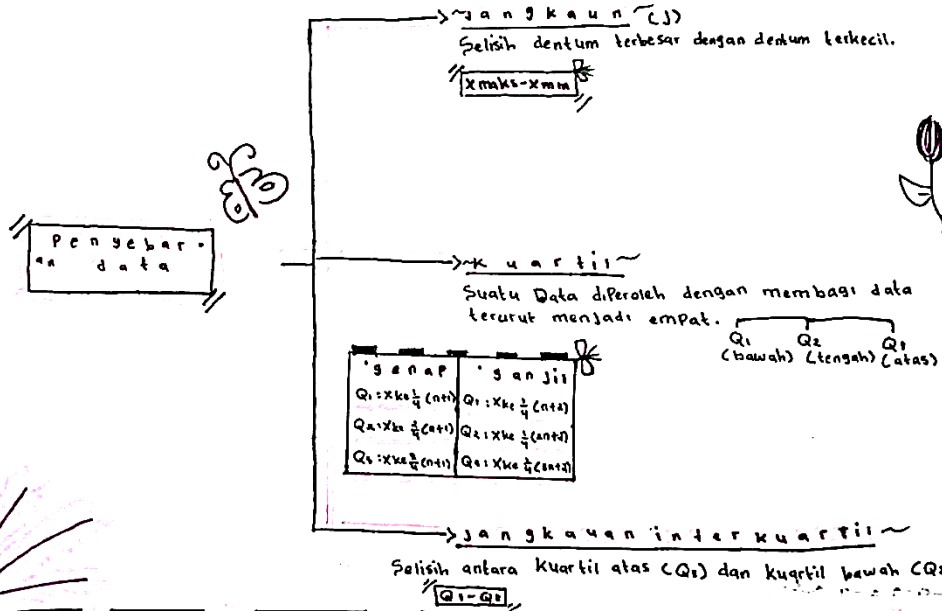 ~Jangkaun~(J)
Selisih dentum terbesar dengan dentum terkecil.
Xmaks-Xmin
Penyebar-
an data
~Kuartil~
Suatu Data diperoleh dengan membagi data
terurut menjadi empat.
Q1 Q2 Q3
(bawah) (tengah) (atas)
'genap 'ganjil
Q1:Xke 1/4(n+1) Q1:Xke 1/4(n+2)
Q2:Xke 2/4(n+1) Q2:Xke 1/4(2n+2)
Q3:Xke 3/4(n+1) Q3:Xke 1/4(3n+2)
Jangkauan interkuartil~
Selisih antara Kuartil atas (Q3) dan Kuartil bawah